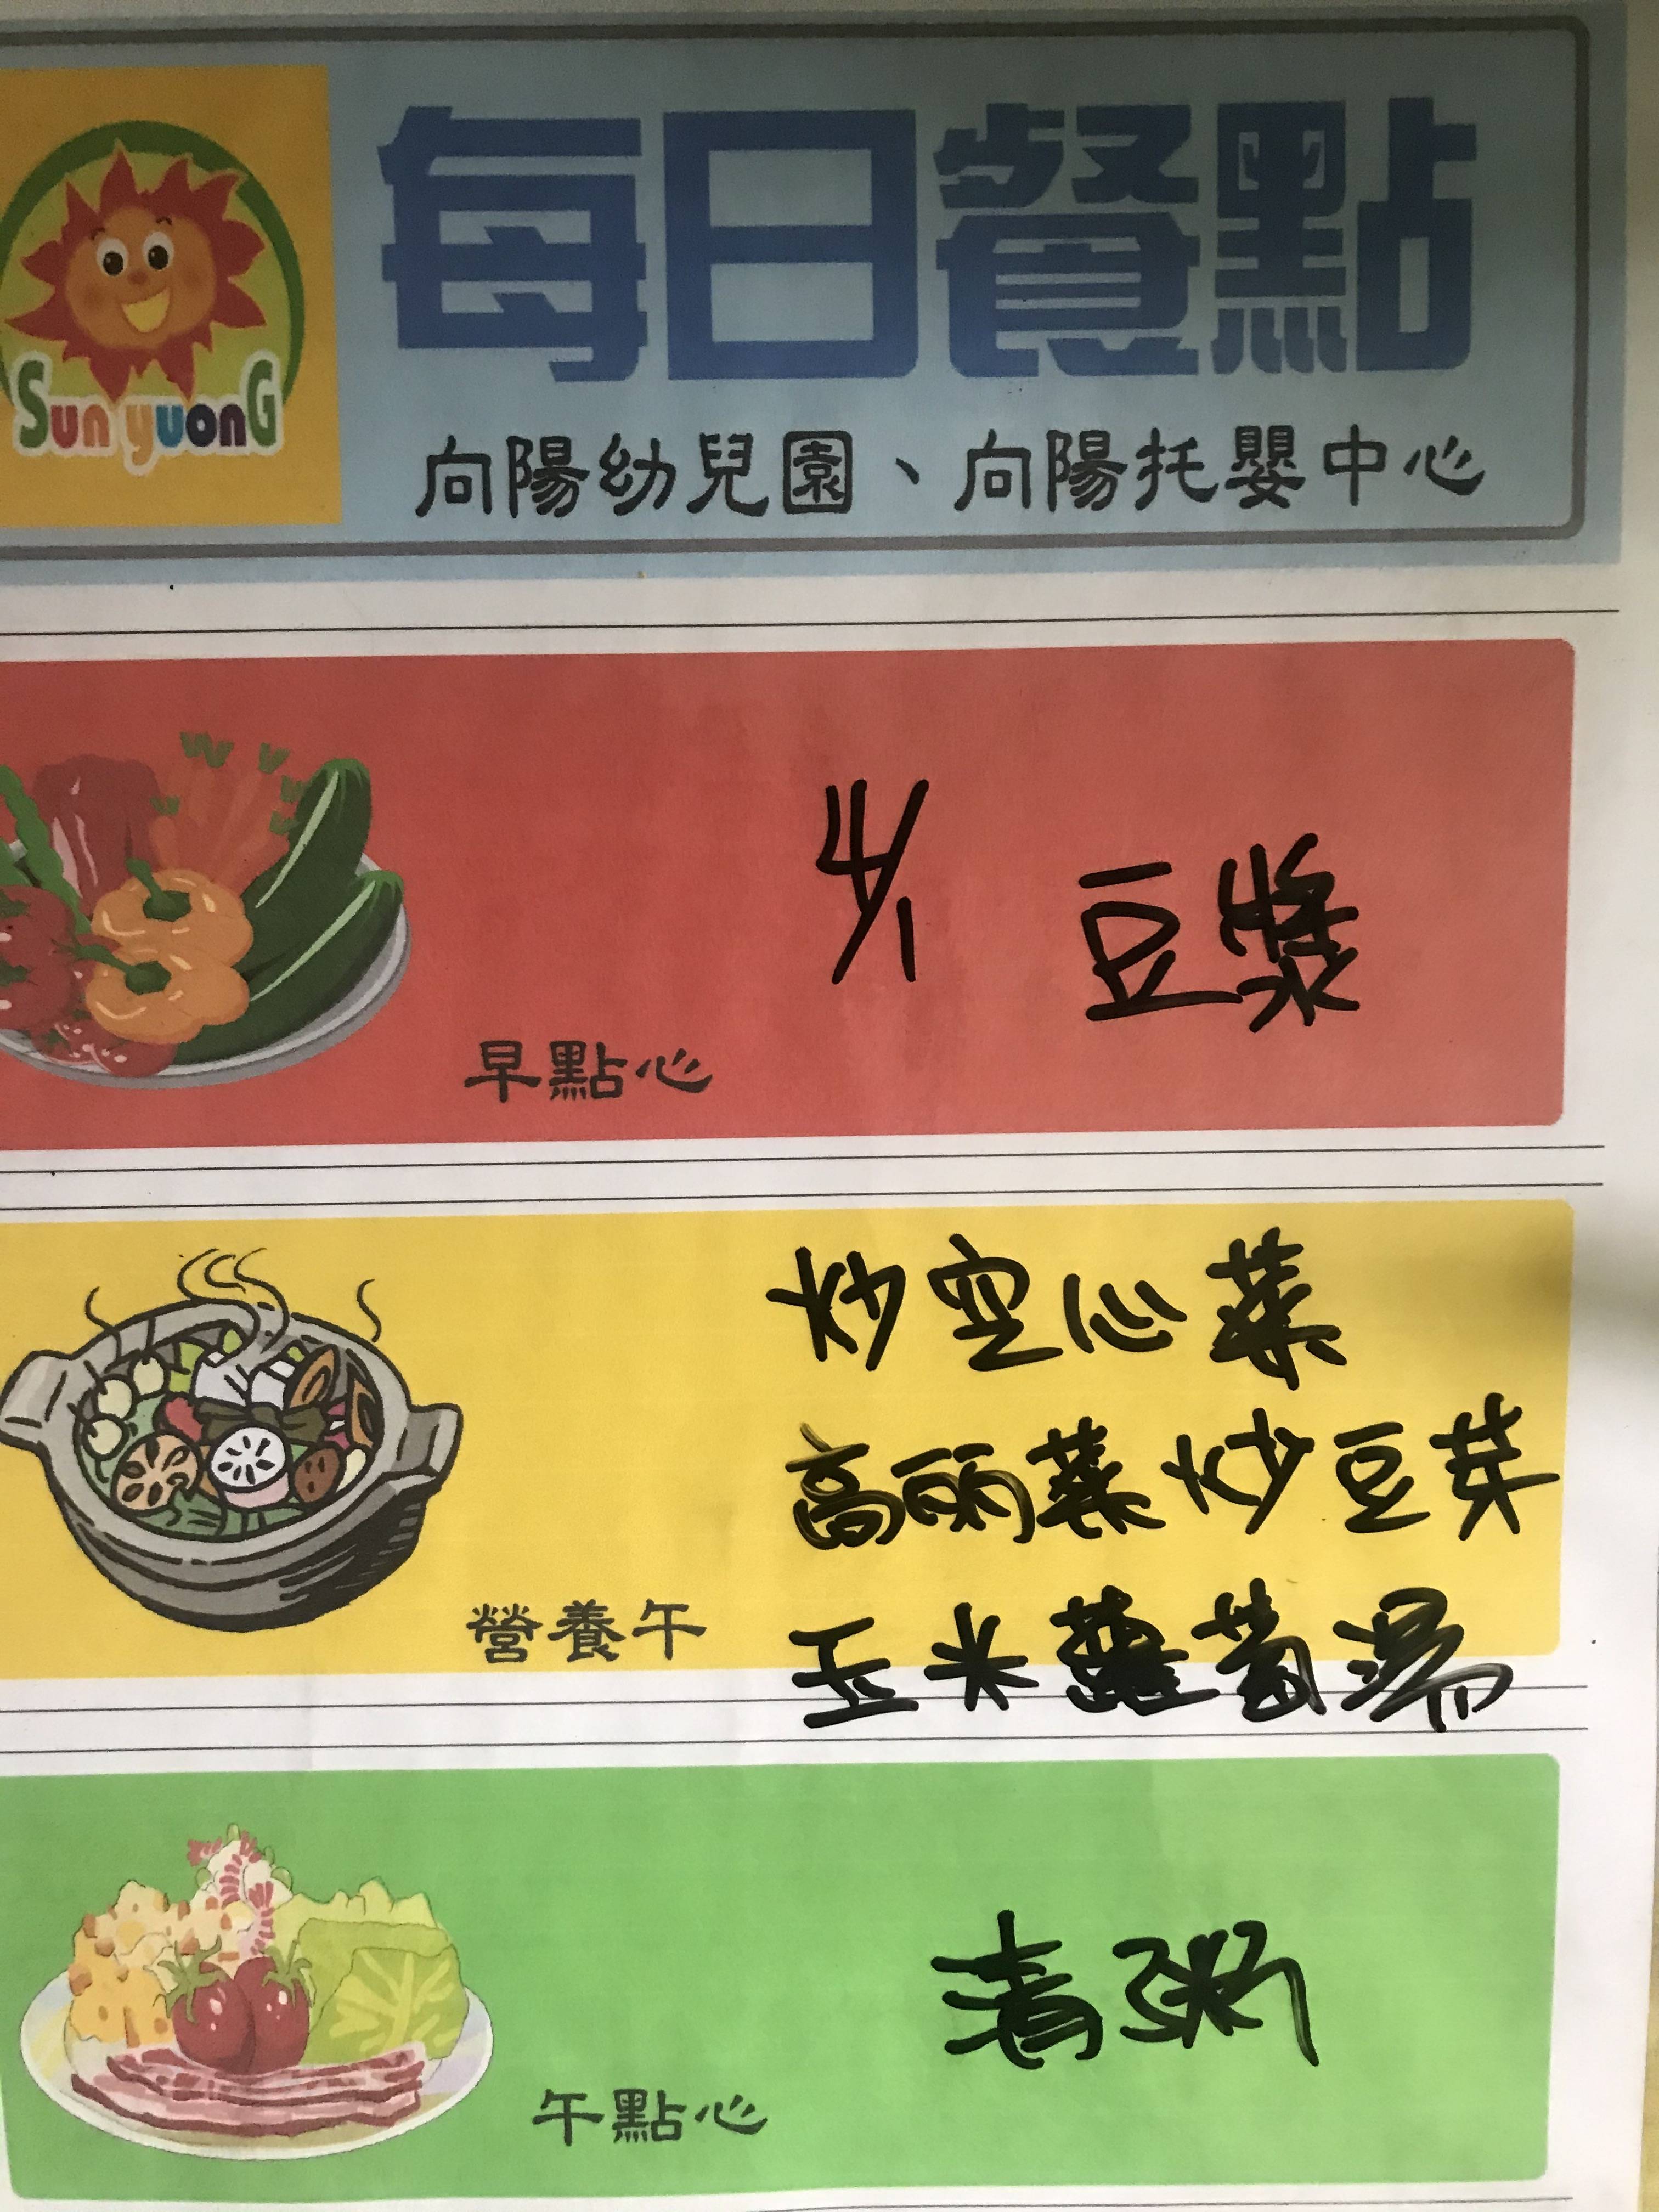 每日餐點
Sun yuonG
向陽幼兒園、向陽托嬰中心
4/1 豆漿
早點心
炒空心菜
高丽菜炒豆芽
營養午
玉米蘿蔔湯
清粥
午點心